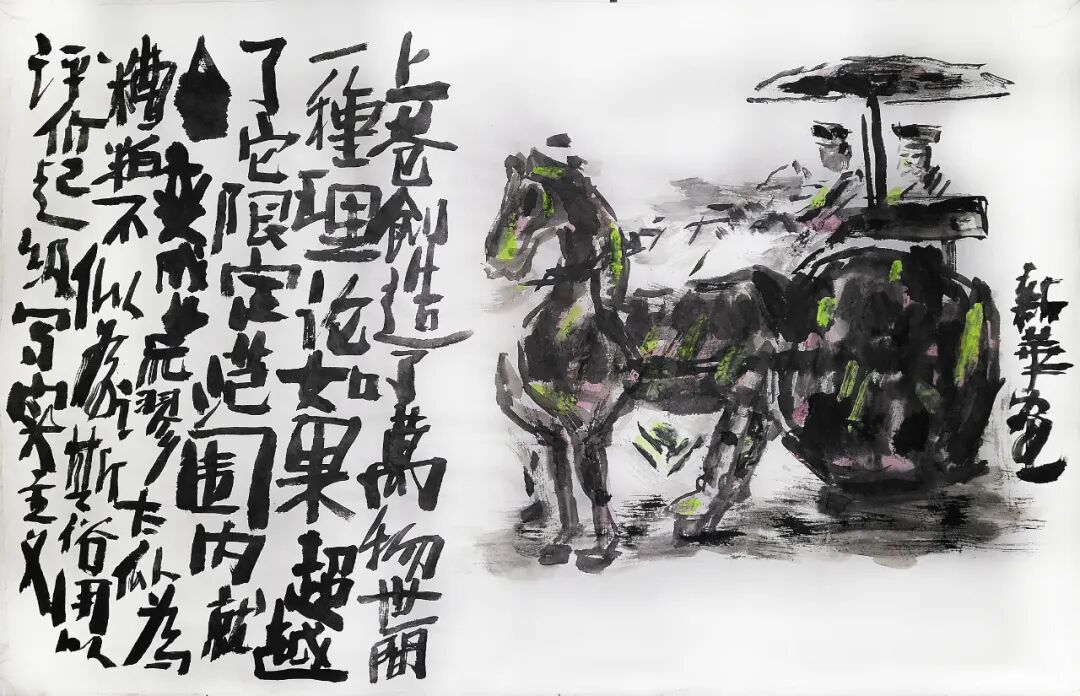 上苍創造了萬物世間
一種理论如果超越
了它限定范围内就
变成荒謬太似為
糟粕不似為欺俗用以
评价超级写实主义
新華画